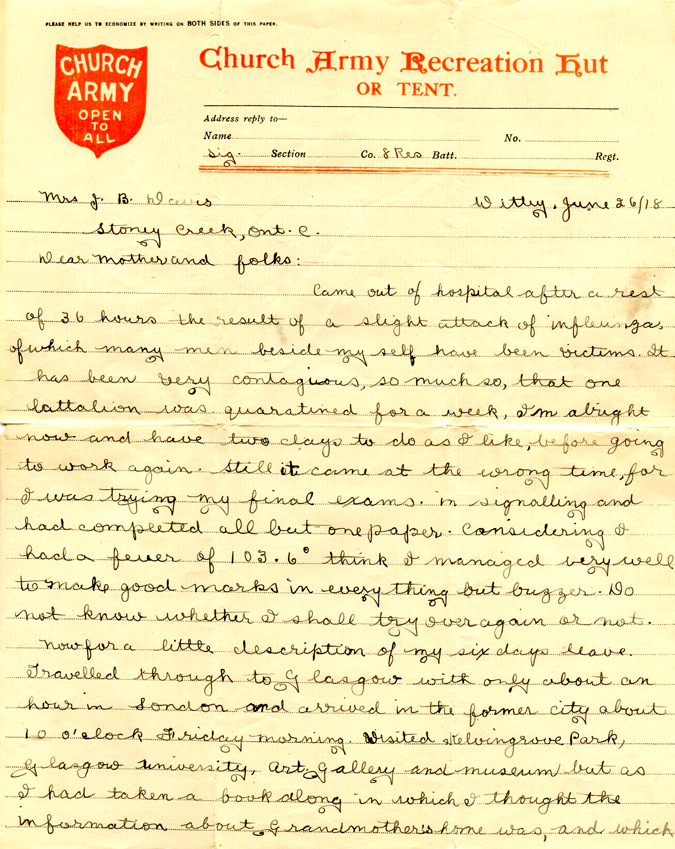 PLEASE HELP US TO ECONOMIZE BY WRITING ON BOTH SIDES OF THIS PAPER.
CHURCH
ARMY
OPEN
TO
ALL
Church Army Recreation Hut
OR TENT.
Address reply to—
Name No.
Sig. Section Co. 8 Res Batt. Regt.
Mrs J. B. Davis Witley. June 26/18
Stoney Creek, Ont. C.
Dear Mother and folks:
Came out of hospital after a rest
of 36 hours the result of a slight attack of influinga,
of which many men beside my self have been victims. It
has been very contagious, so much so, that one
battalion was quaratined for a week, I'm alright
now and have two days to do as I like, before going
to work again. Still it came at the wrong time, for
I was trying my final exams. in signalling and
had completed all but one paper. Considering I
had a fever of 103.6° think I managed very well
to make good marks in everything but buzzer. Do
not know whether I shall try over again or not.
Now for a little description of my six days leave.
Travelled through to Glasgow with only about an
hour in London and arrived in the former city about
10 o'clock Friday morning. Visited Kelvingrove Park,
Glasgow University, Art Gallery and museum but as
I had taken a book along in which I thought the
information about Grandmother's home was, and which